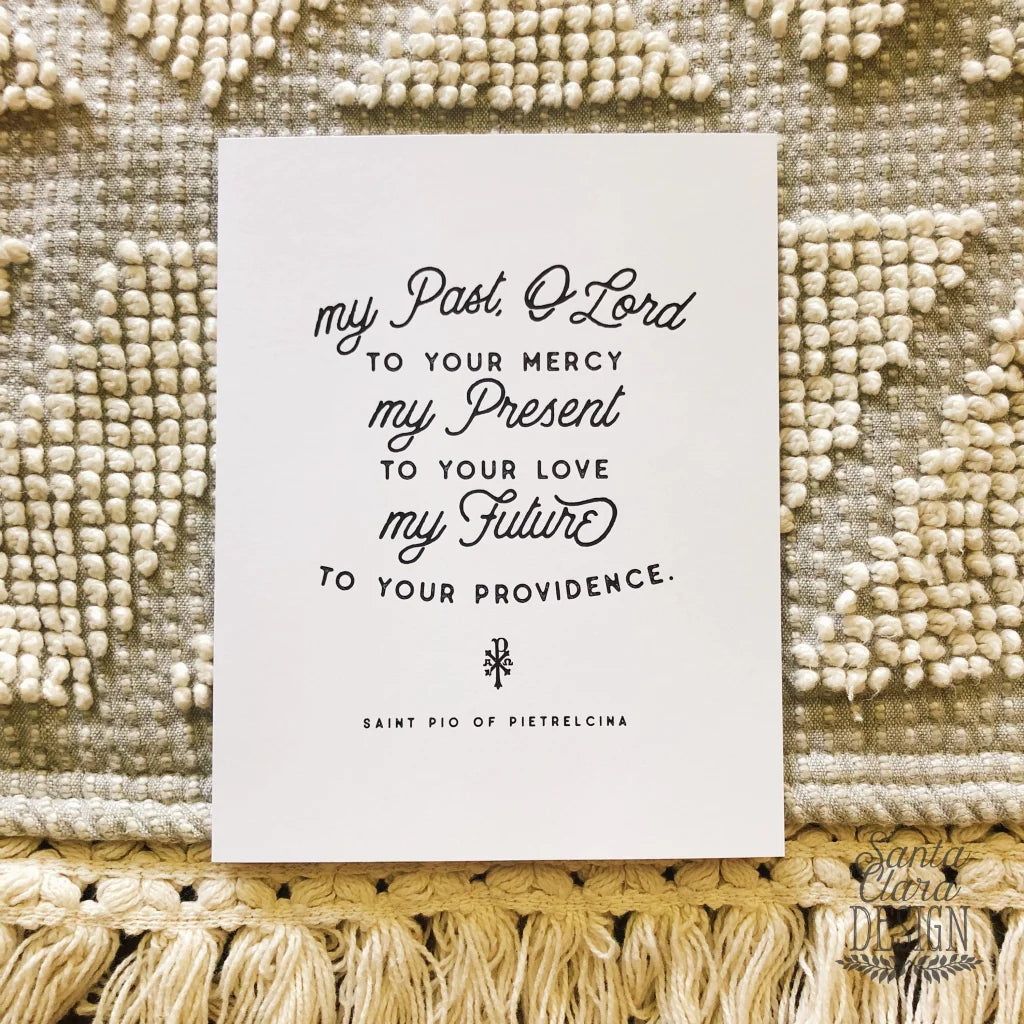 my Past, O Lord
TO YOUR MERCY
my Present
TO YOUR LOVE
my Future
TO YOUR PROVIDENCE.
SAINT PIO OF PIETRELCINA
Santa
Clara
DESIGN